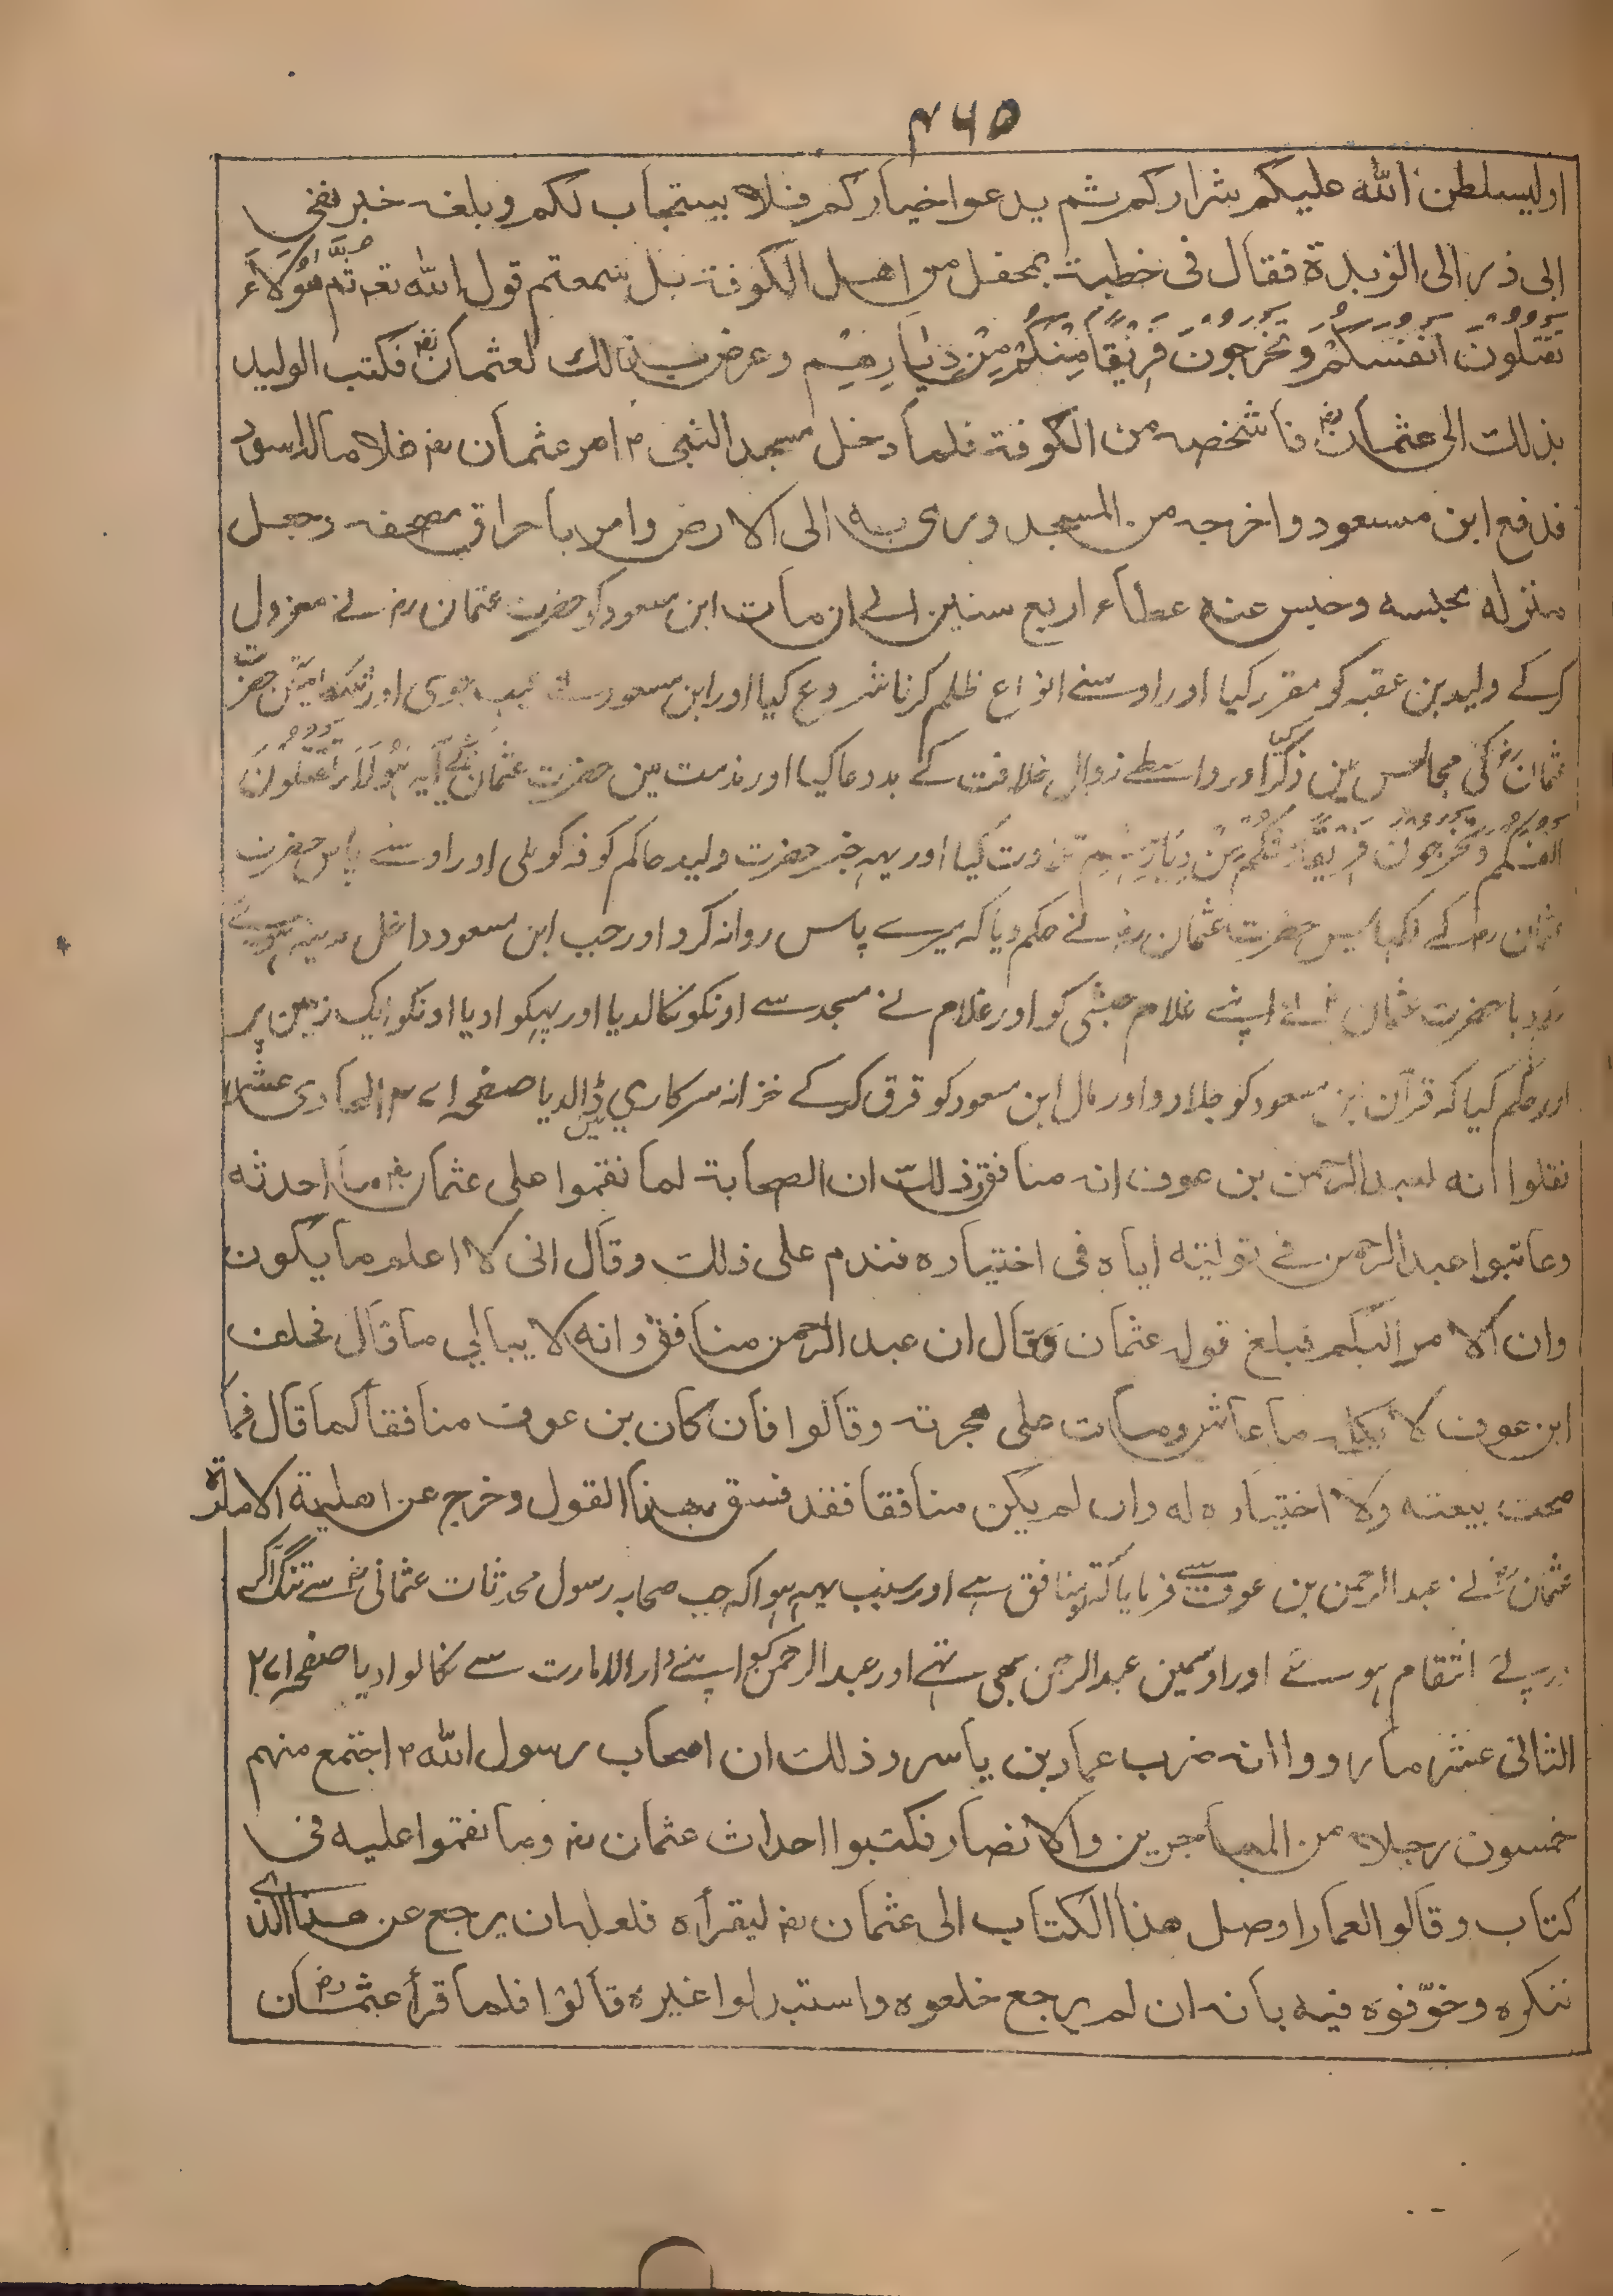 ۴۶۵
اولیسلطن الله علیکم شرارکم ثم یدعوا خیارکم فلا یستجاب لکم وبلغه خبر نفی
ابی ذر الی الربذة فقال فی خطبة بمحفل من اهل الکوفة بل سمعتم قول الله تعه ثُمَّ اَنْتُمْ هٰؤُلَاءِ
تَقْتُلُوْنَ اَنْفُسَكُمْ وَتُخْرِجُوْنَ فَرِيْقًا مِنْكُمْ مِنْ دِيَارِهِمْ وعرض بذالک لعثمان رض فکتب الولید
بذلک الی عثمان رض فاشخصه من الکوفة فلما دخل مسجد النبی م امر عثمان رض غلاما له اسود
فدفع ابن مسعود واخرجه من المسجد ورمی به الی الارض وامر باحراق مصحفه وجعل
منزله محبسه وحبس عنه عطاء اربع سنین الے ان مات ابن مسعود کو حضرت عثمان رض نے معزول
کرکے ولید بن عقبہ کو مقرر کیا اور اوسنے انواع ظلم کرنا شروع کیا اور ابن مسعود سے عیب جوی اور حضرت
عثمان رض کی مجالس مین ذکر کیا اور واسطے زوال خلافت کے بددعا کیا اور مذمت مین حضرت عثمان رض کے آیہ هٰؤُلَاءِ تَقْتُلُوْنَ
اَنْفُسَكُمْ وَتُخْرِجُوْنَ فَرِيْقًا مِنْكُمْ مِنْ دِيَارِهِمْ تلاوت کیا اور یہہ خبر حضرت ولید حاکم کوفہ کو ملی اور اوسنے پاس حضرت
عثمان رض کے لکہا پس حضرت عثمان رض نے حکم دیا کہ میرے پاس روانہ کرو اور جب ابن مسعود داخل مدینہ ہوے
حضرت عثمان نے اپنے غلام حبشی کو اور غلام نے مسجد سے اونکو نکالدیا اور پہیکوادیا اونکو ایک زمین پر
اور حکم کیا کہ قرآن ابن مسعود کو جلادو اور مال ابن مسعود کو قرق کرکے خزانہ سرکاری مین ڈالدیا صفحہ ۲۷۱ الحادی عشر
نقلوا انه لعبد الرحمن بن عوف انه منافق وذلک ان الصحابة لما نقموا علی عثمان رض ما احدثه
وعاتبوا عبد الرحمن فے تولیته ایاه فی اختیاره فندم علی ذلک وقال انی لا اعلم ما یکون
وان الامر الیکم فبلغ قوله عثمان وقال ان عبد الرحمن منافق وانه لا یبالی ما قال فحلف
ابن عوف لا یکلمه ما عاش ومات علی هجرته وقالوا فان کان بن عوف منافقا کما قال فما
صحت بیعته ولا اختیاره له وان لم یکن منافقا فقد فسق بهذا القول وخرج عن اهلیة الامامة
عثمان رض نے عبد الرحمن بن عوف سے فرمایا کہ تو منافق ہے اور سبب یہہ ہوا کہ جب صحابہ رسول محدثات عثمانی رض سے تنگ آکے
درپے انتقام ہوئے اور اوسمین عبد الرحمن بہی تہے اور عبد الرحمن کو اپنے دار الامارت سے نکالوادیا صفحہ ۲۷۱
الثانی عشر ما رووا انه ضرب عمار بن یاسر وذلک ان اصحاب رسول الله م اجتمع منهم
خمسون رجلا من المهاجرین والانصار فکتبوا احداث عثمان رض وما نقموا علیه فی
کتاب وقالوا لعمار اوصل هذا الکتاب الی عثمان رض لیقرأه فلعله ان یرجع عن هذا الذی
ننکره وخوّفوه فیه بانه ان لم یرجع خلعوه واستبدلوا غیره قالوا فلما قرأ عثمان رض